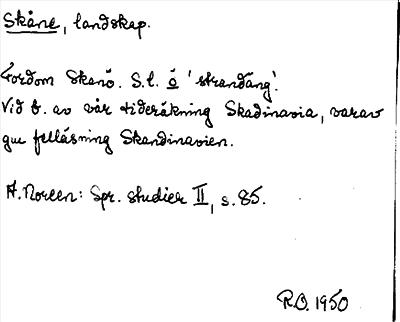 Skåne, landskap.
Fordom Skanö. S.l. ö 'strandäng'.
Vid b. av vår tideräkning Skadinavia, varav
gm felläsning Skandinavien.
A. Noreen: Spr. studier II, s. 85.
R.O. 1950